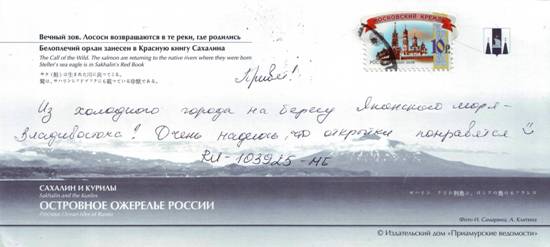 Вечный зов. Лососи возвращаются в те реки, где родились
Белоплечий орлан занесен в Красную книгу Сахалина
The Call of the Wild. The salmon are returning to the native rivers where they were born
Steller's sea eagle is in Sakhalin's Red Book
МОСКОВСКИЙ КРЕМЛЬ
10р
Привет!
Из холодного города на берегу Японского моря -
Владивостока! Очень надеюсь, что открытки понравятся
RU-103925-НЕ
САХАЛИН И КУРИЛЫ
Sakhalin and the Kuriles
ОСТРОВНОЕ ОЖЕРЕЛЬЕ РОССИИ
Precious Ocean Isles of Russia
Фото И. Самарина, А. Клитина
© Издательский дом «Приамурские ведомости»